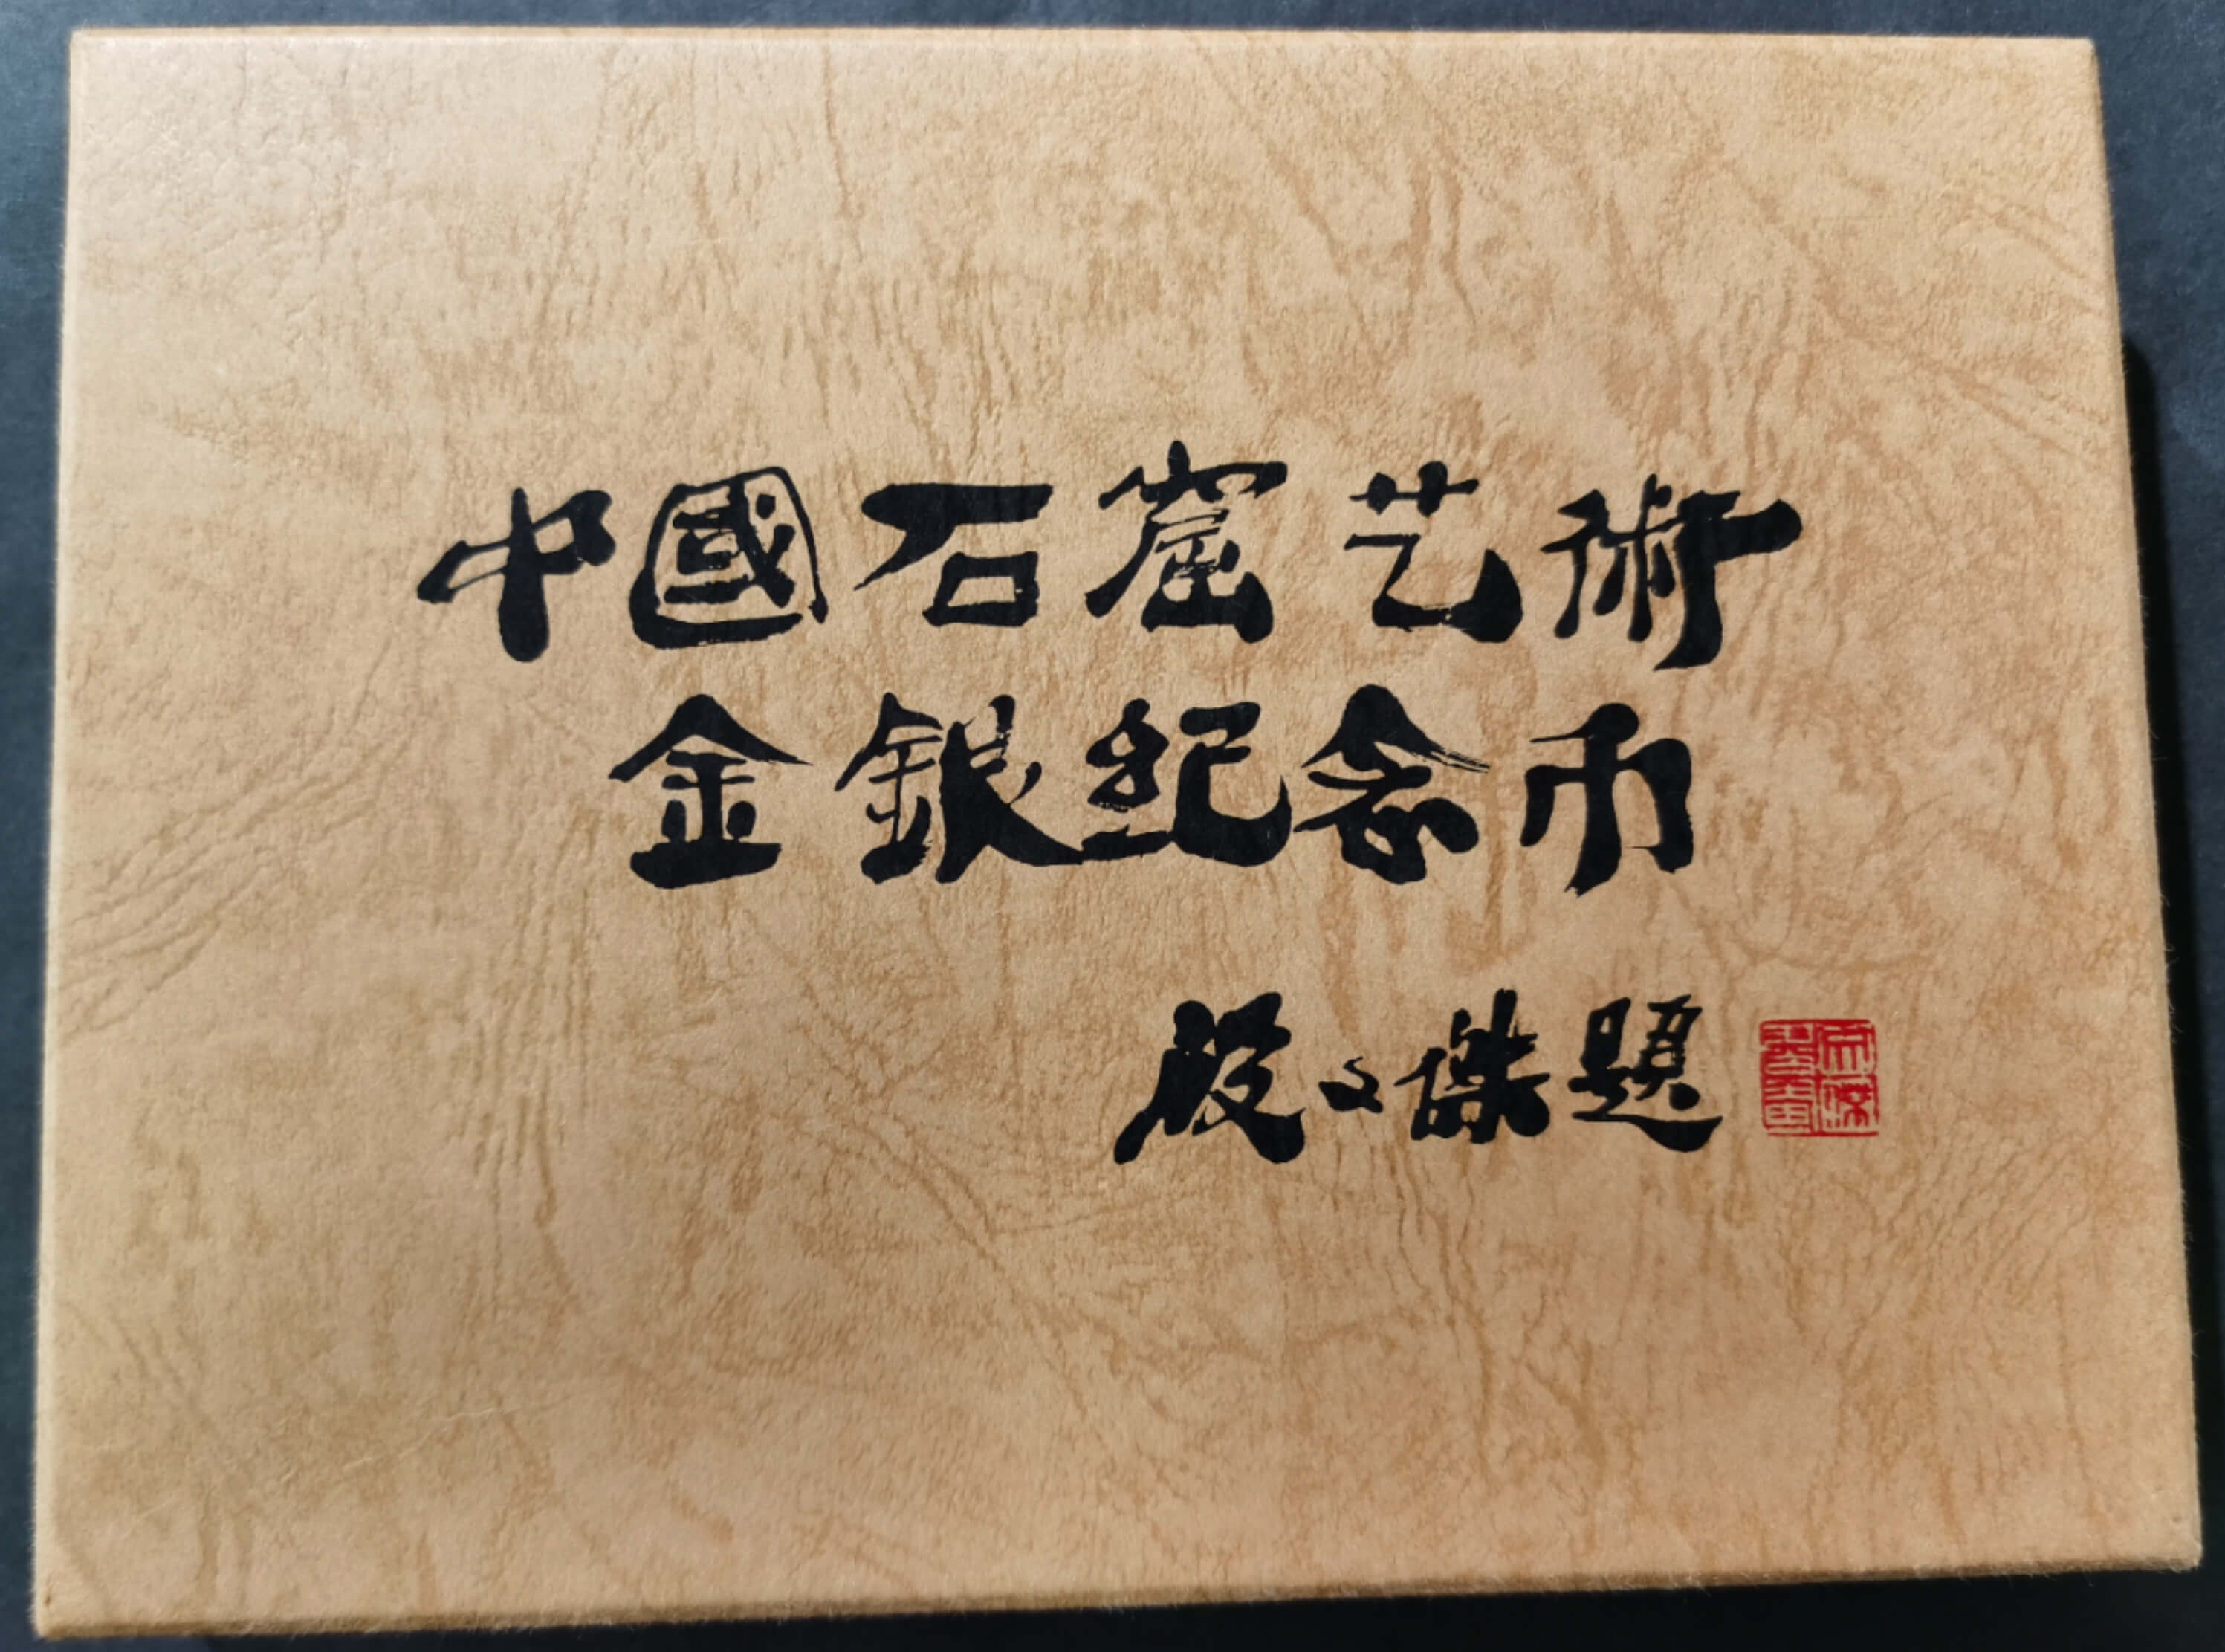 中國石窟艺術
金銀紀念币
段文傑題